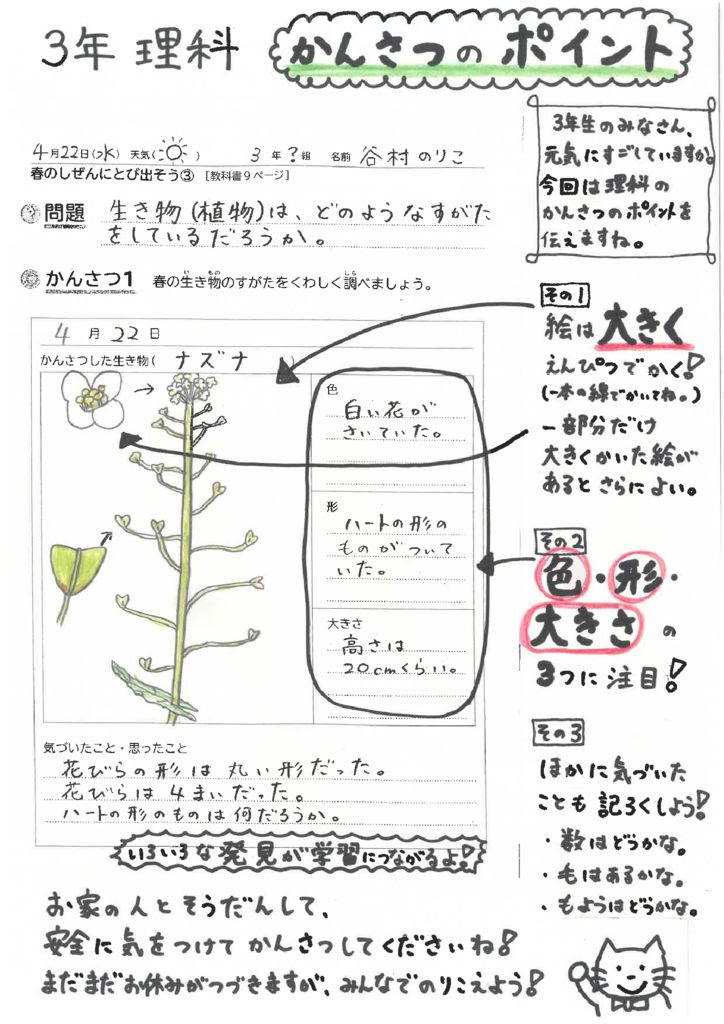 3年 理科 かんさつのポイント
3年生のみなさん、
元気にすごしていますか。
今回は理科の
かんさつのポイントを
伝えますね。
4月22日(水) 天気( ) 3年?組 名前 谷村のりこ
春のしぜんにとび出そう③ [教科書9ページ]
問題 生き物(植物)は、どのようなすがた
をしているだろうか。
かんさつ1 春の生き物のすがたをくわしく調べましょう。
4月22日
かんさつした生き物( ナズナ )
色
白い花が
さいていた。
形
ハートの形の
ものがついて
いた。
大きさ
高さは
20cmくらい。
気づいたこと・思ったこと
花びらの形は丸い形だった。
花びらは4まいだった。
ハートの形のものは何だろうか。
いろいろな発見が学習につながるよ!
その1
絵は大きく
えんぴつでかく!
(一本の線でかいてね。)
一部分だけ
大きくかいた絵が
あるとさらによい。
その2
色・形・
大きさの
3つに注目!
その3
ほかに気づいた
ことも記ろくしよう!
・数はどうかな。
・毛はあるかな。
・もようはどうかな。
お家の人とそうだんして、
安全に気をつけてかんさつしてくださいね!
まだまだお休みがつづきますが、みんなでのりこえよう!